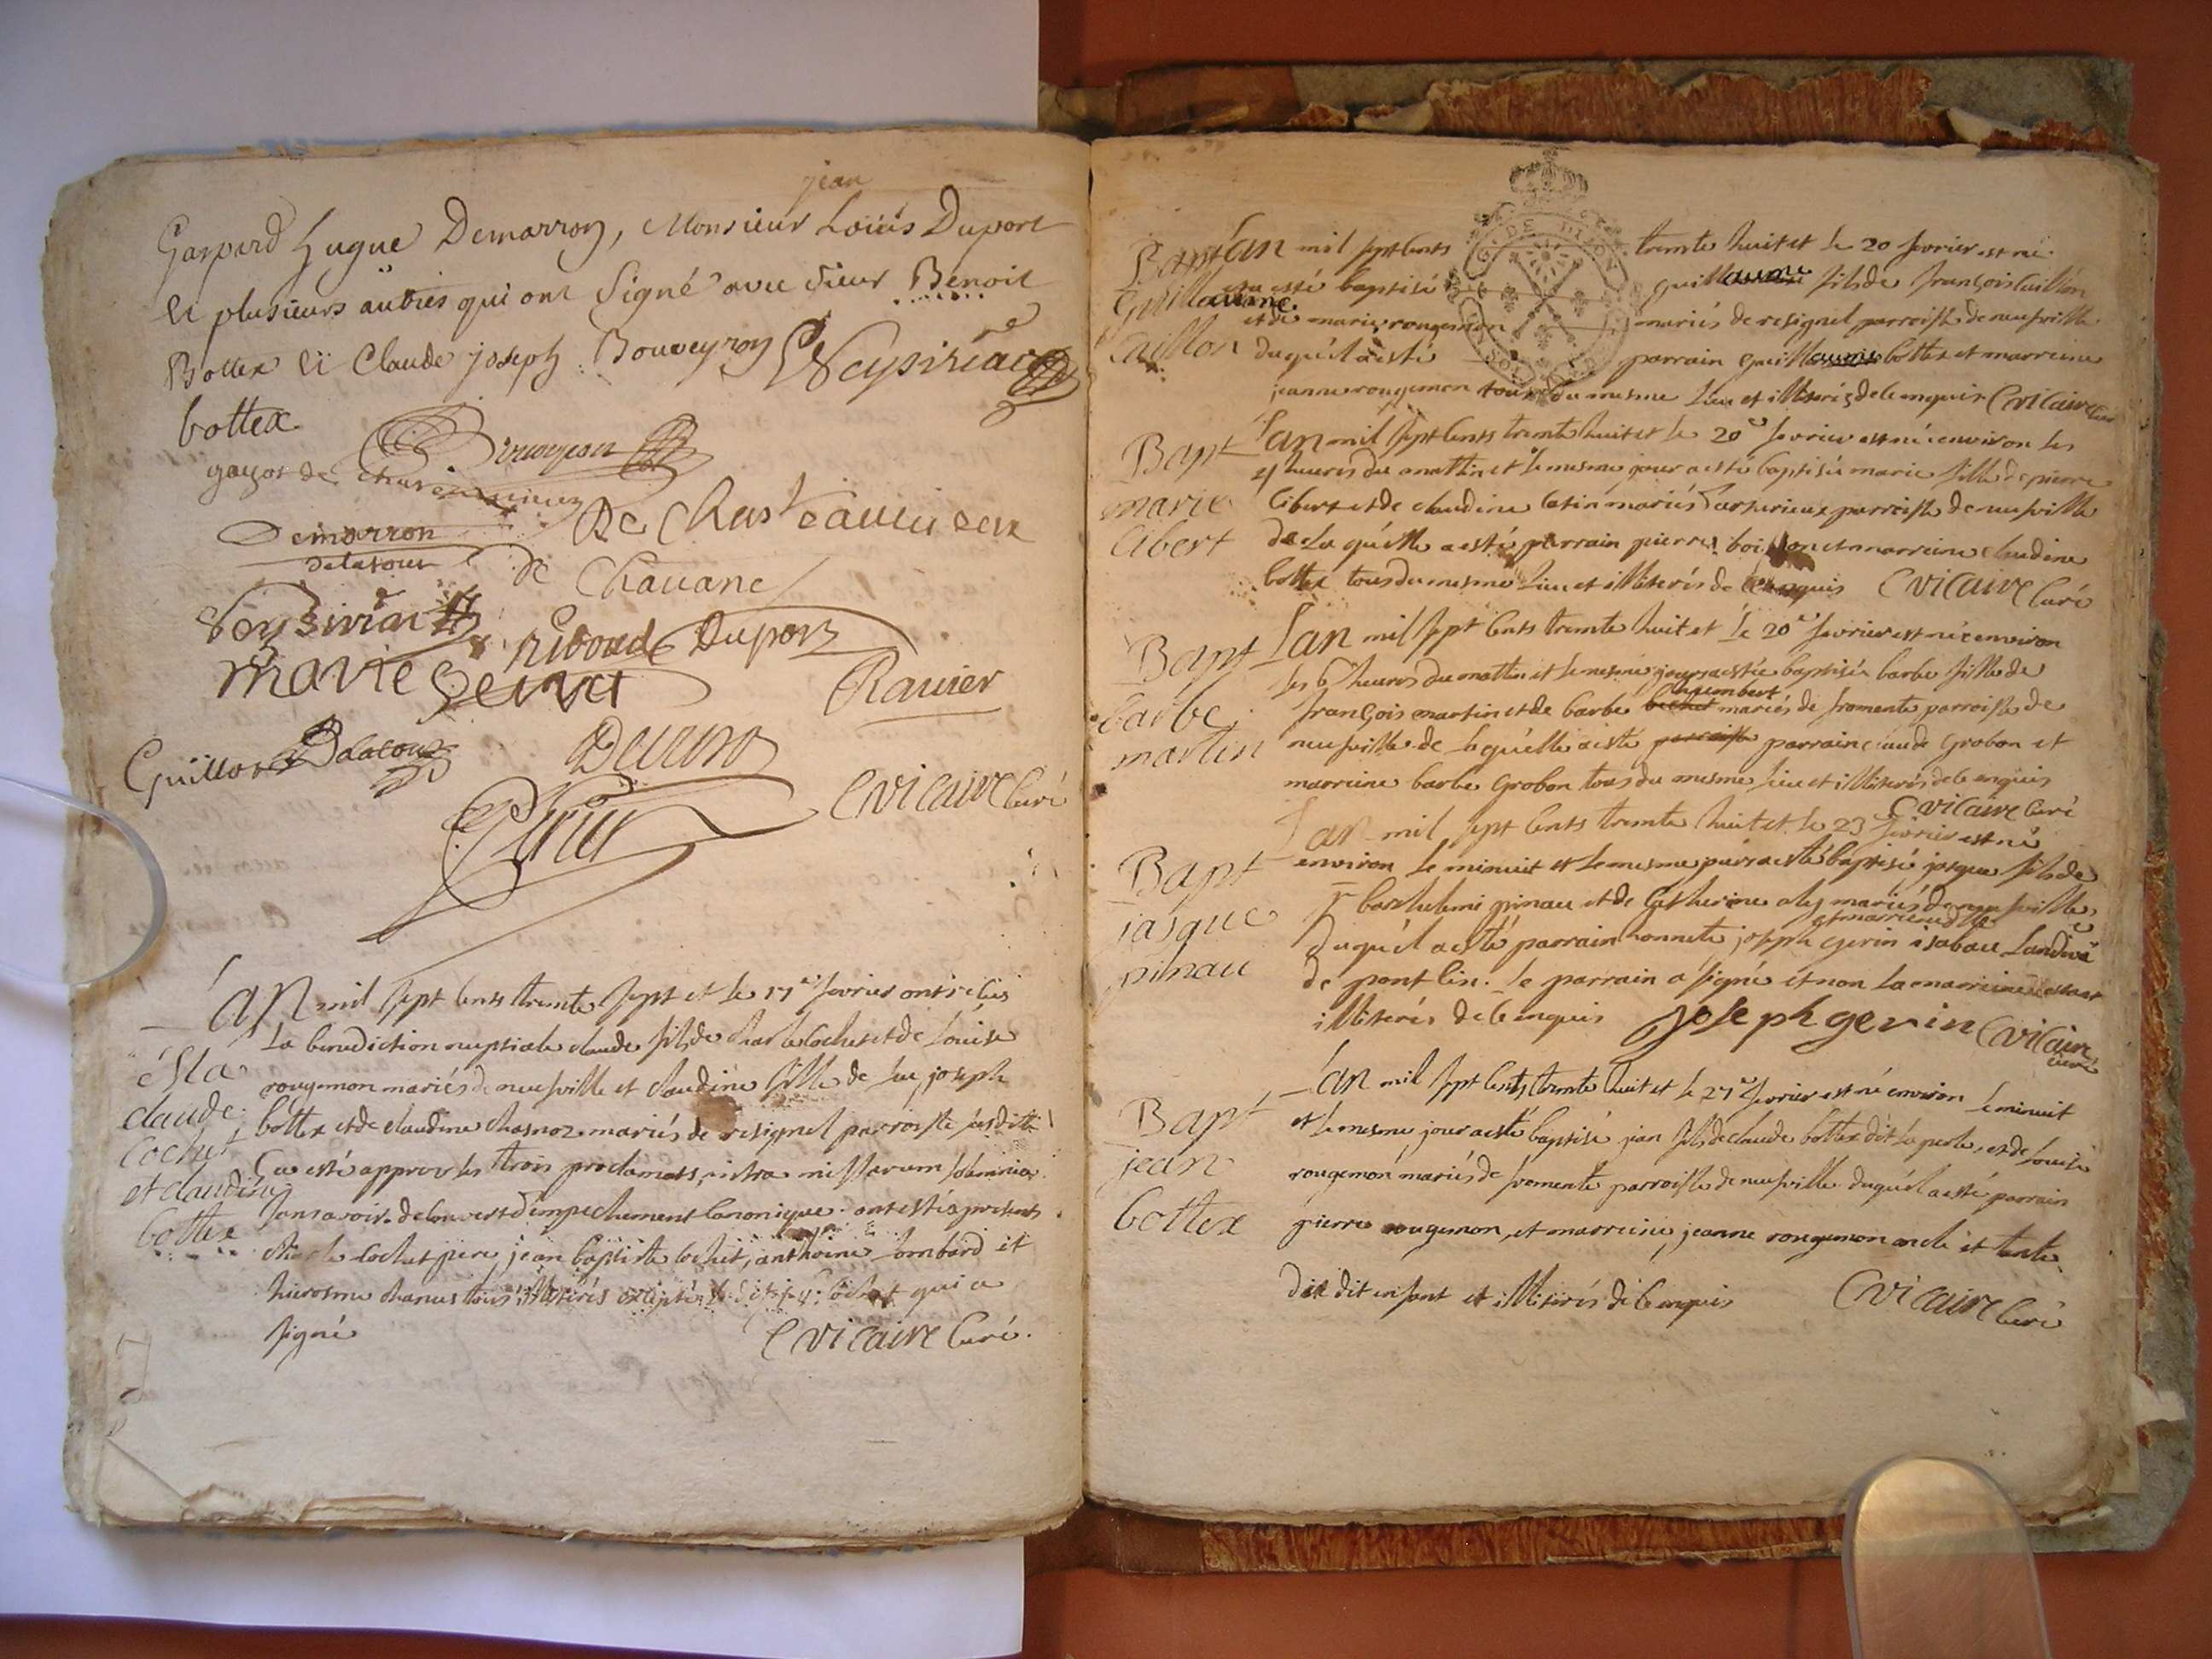 jean
Gaspard hugue Demarron, Monsieur Louis Duport
et plusieurs autres qui ont Signé avec Sieur Benoit
Bottex et Claude joseph Bouveyron Veysiriac
bottex
gayot de
Demarron De Chasteauvieux
delatour de Chavane
Veysiria
riboud Dupor
marie Ravier
Guillot Delatour
Cvicaire Curé
L'an mil sept cents trente sept et le 17e fevrier ont reçûs
la benediction nuptiale claude fils de charle cochet et de Louise
rougemon mariés de neufville et claudine fille de feu joseph
bottex et de claudine chasnoz mariés de resignel parroisse susditte
Ça esté approv les trois proclamats, intra missarum solemnia
sans avoir decouvert d'impechement Canonique. ont estés presents
charle cochet pere, jean baptiste cochet, anthoine lombard et
hierosme chanus tous illiterés exceptés qui a
signé Cvicaire Curé.
claude
cochet
et claudine
bottex
Bapt
Guillaume
Cuillon
L'an mil sept cents trente huit et le 20 fevrier est né
et a esté baptisé guillaume fils de françois Cuillon
et de marie rougemon mariés de resignel parroisse de neufville
duquel a esté parrain guillaume bottex et marreine
jeanne rougemon tous du mesme Lieu et illiterés de ce enquis Cvicaire Curé
Bapt
marie
Cibert
L'an mil sept cents trente huit et le 20e fevrier est née environ les
heures du mattin et le mesme jour a esté baptisée marie fille de pierre
Cibert et de claudine mariés parroisse de neufville
de Laquelle a esté parrain pierre et marreine claudine
bottex tous du mesme Lieu et illiterés de ce enquis Cvicaire Curé
Bapt
barbe
martin
L'an mil sept cents trente huit et le 20e fevrier est née environ
les 6 heures du mattin et le mesme jour a estée baptisée barbe fille de
chambert
françois martin et de barbe mariés de fromente parroisse de
neufville de laquelle a esté parrain claude Grobon et
marreine barbe Grobon tous du mesme lieu et illiterés de ce enquis
Cvicaire Curé
Bapt
jasque
pinau
L'an mil sept cents trente huit et le 23 fevrier est né
environ le minuit et le mesme jour a esté baptisé jasque fils de
barthelemi pinau et de Catherine mariés de neufville,
et marreine
duquel a esté parrain honnete joseph gerin isabau
de pont Cin. le parrain a signé et non la marreine
illiterés de ce enquis joseph gerin Cvicaire
Curé
Bapt
jean
bottex
L'an mil sept cents trente huit et le 27e fevrier est né environ le minuit
et le mesme jour a esté baptisé jean fils de claude bottex dit la perle, et de Louise
rougemon mariés de fromente parroisse de neufville duquel a esté parrain
pierre rougemon, et marreine, jeanne rougemon oncle et tante
du dit enfant et illiterés de ce enquis Cvicaire Curé